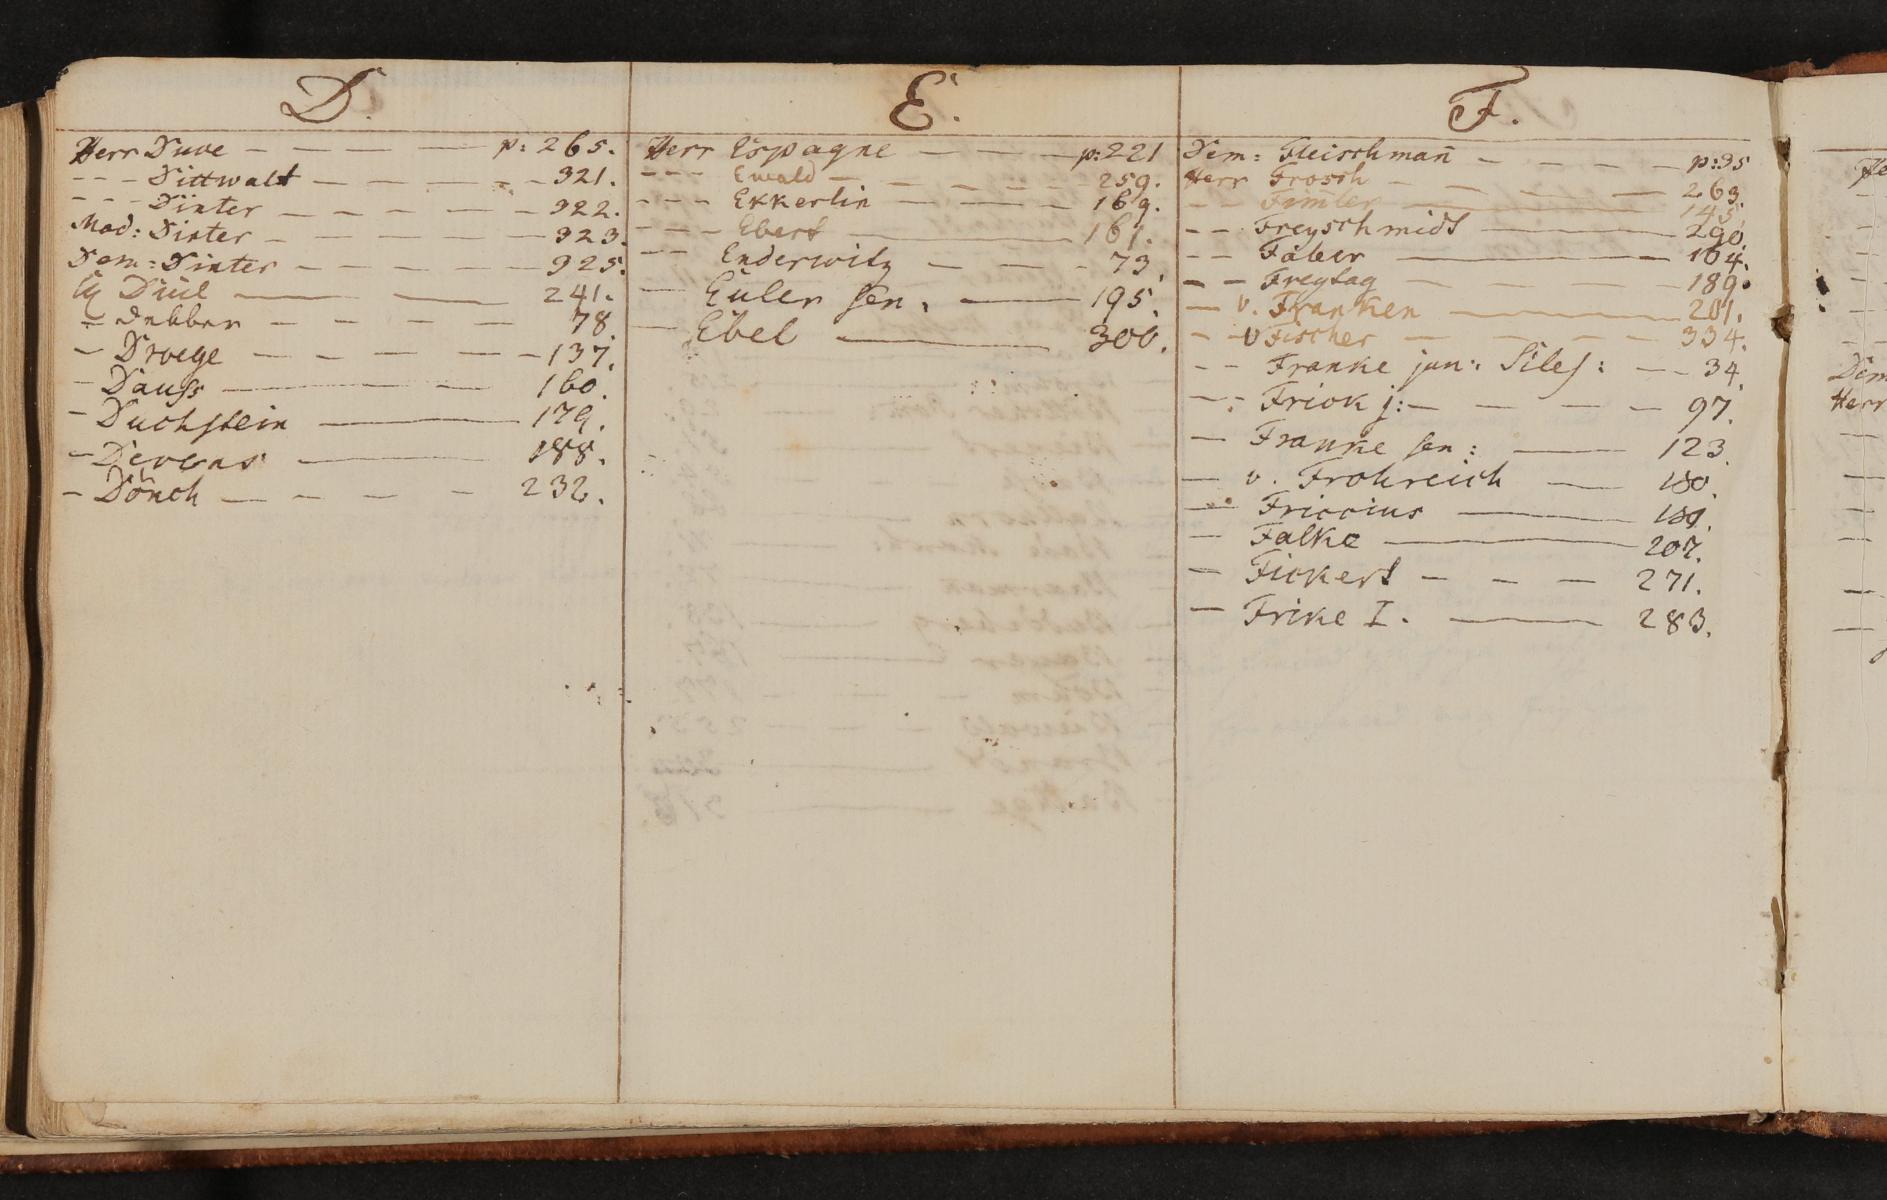 D.
Herr Duve — — — — p: 265.
- - - Dittwalt — — — — 321.
- - - Dinter — — — — 322.
Mad: Dinter — — — — 323.
Dem: Dinter — — — — 325.
Düil — — 241.
- Debber — — — — 78
- Droege — — — — 137.
- Dauss — — 160.
- Duchstein — 179.
- Devens — 188.
- Dönch — — — — 232.
E.
Herr Espagne — — — p: 221
- - - Ewald — — — — 259.
- - - Ekkerlin — — — 169.
- - - Ebert — 161.
- - Enderwitz — — - 73.
- Euler sen. — 195.
- Ebel — 300.
F.
Dem: Fleischman̄ — — — p: 35
Herr Frosch — — — — 263.
- - Fim̄ler — 145.
- - Freyschmidt — — — 290.
- - Faber — — 164.
- - Freytag — — — — 189.
- v. Franken — — 201.
- v Fischer — — — — 334.
- - Franke jun: Siles: — - 34.
- - Frick j: — — — — 97.
- Franke sen: — 123.
- v. Frohreich — 180.
- Friccius — 181.
- Falke — 207.
- Fickert — — — 271.
- Frike I. — 283.
Dem
Herr